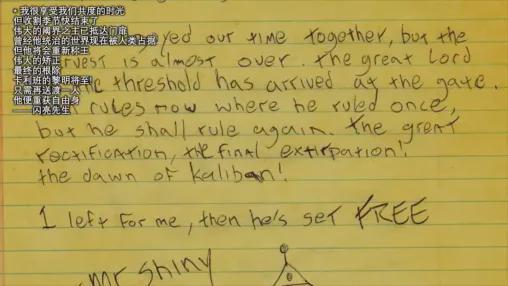 • 我很享受我们共度的时光
但收割季节快结束了
伟大的阈界之主已抵达门扉
曾经他统治的世界现在被人类占据
但他将会重新称王
伟大的矫正
最终的根除
卡利班的黎明将至!
只需再送渡一人
他便重获自由身
——闪亮先生
our time together, but the
is almost over. the great Lord
threshold has arrived at the gate.
rules now where he ruled once,
but he shall rule again. the great
rectification, the final extirpation!
the dawn of Kaliban!
1 left for me, then he's set FREE
-Mr Shiny